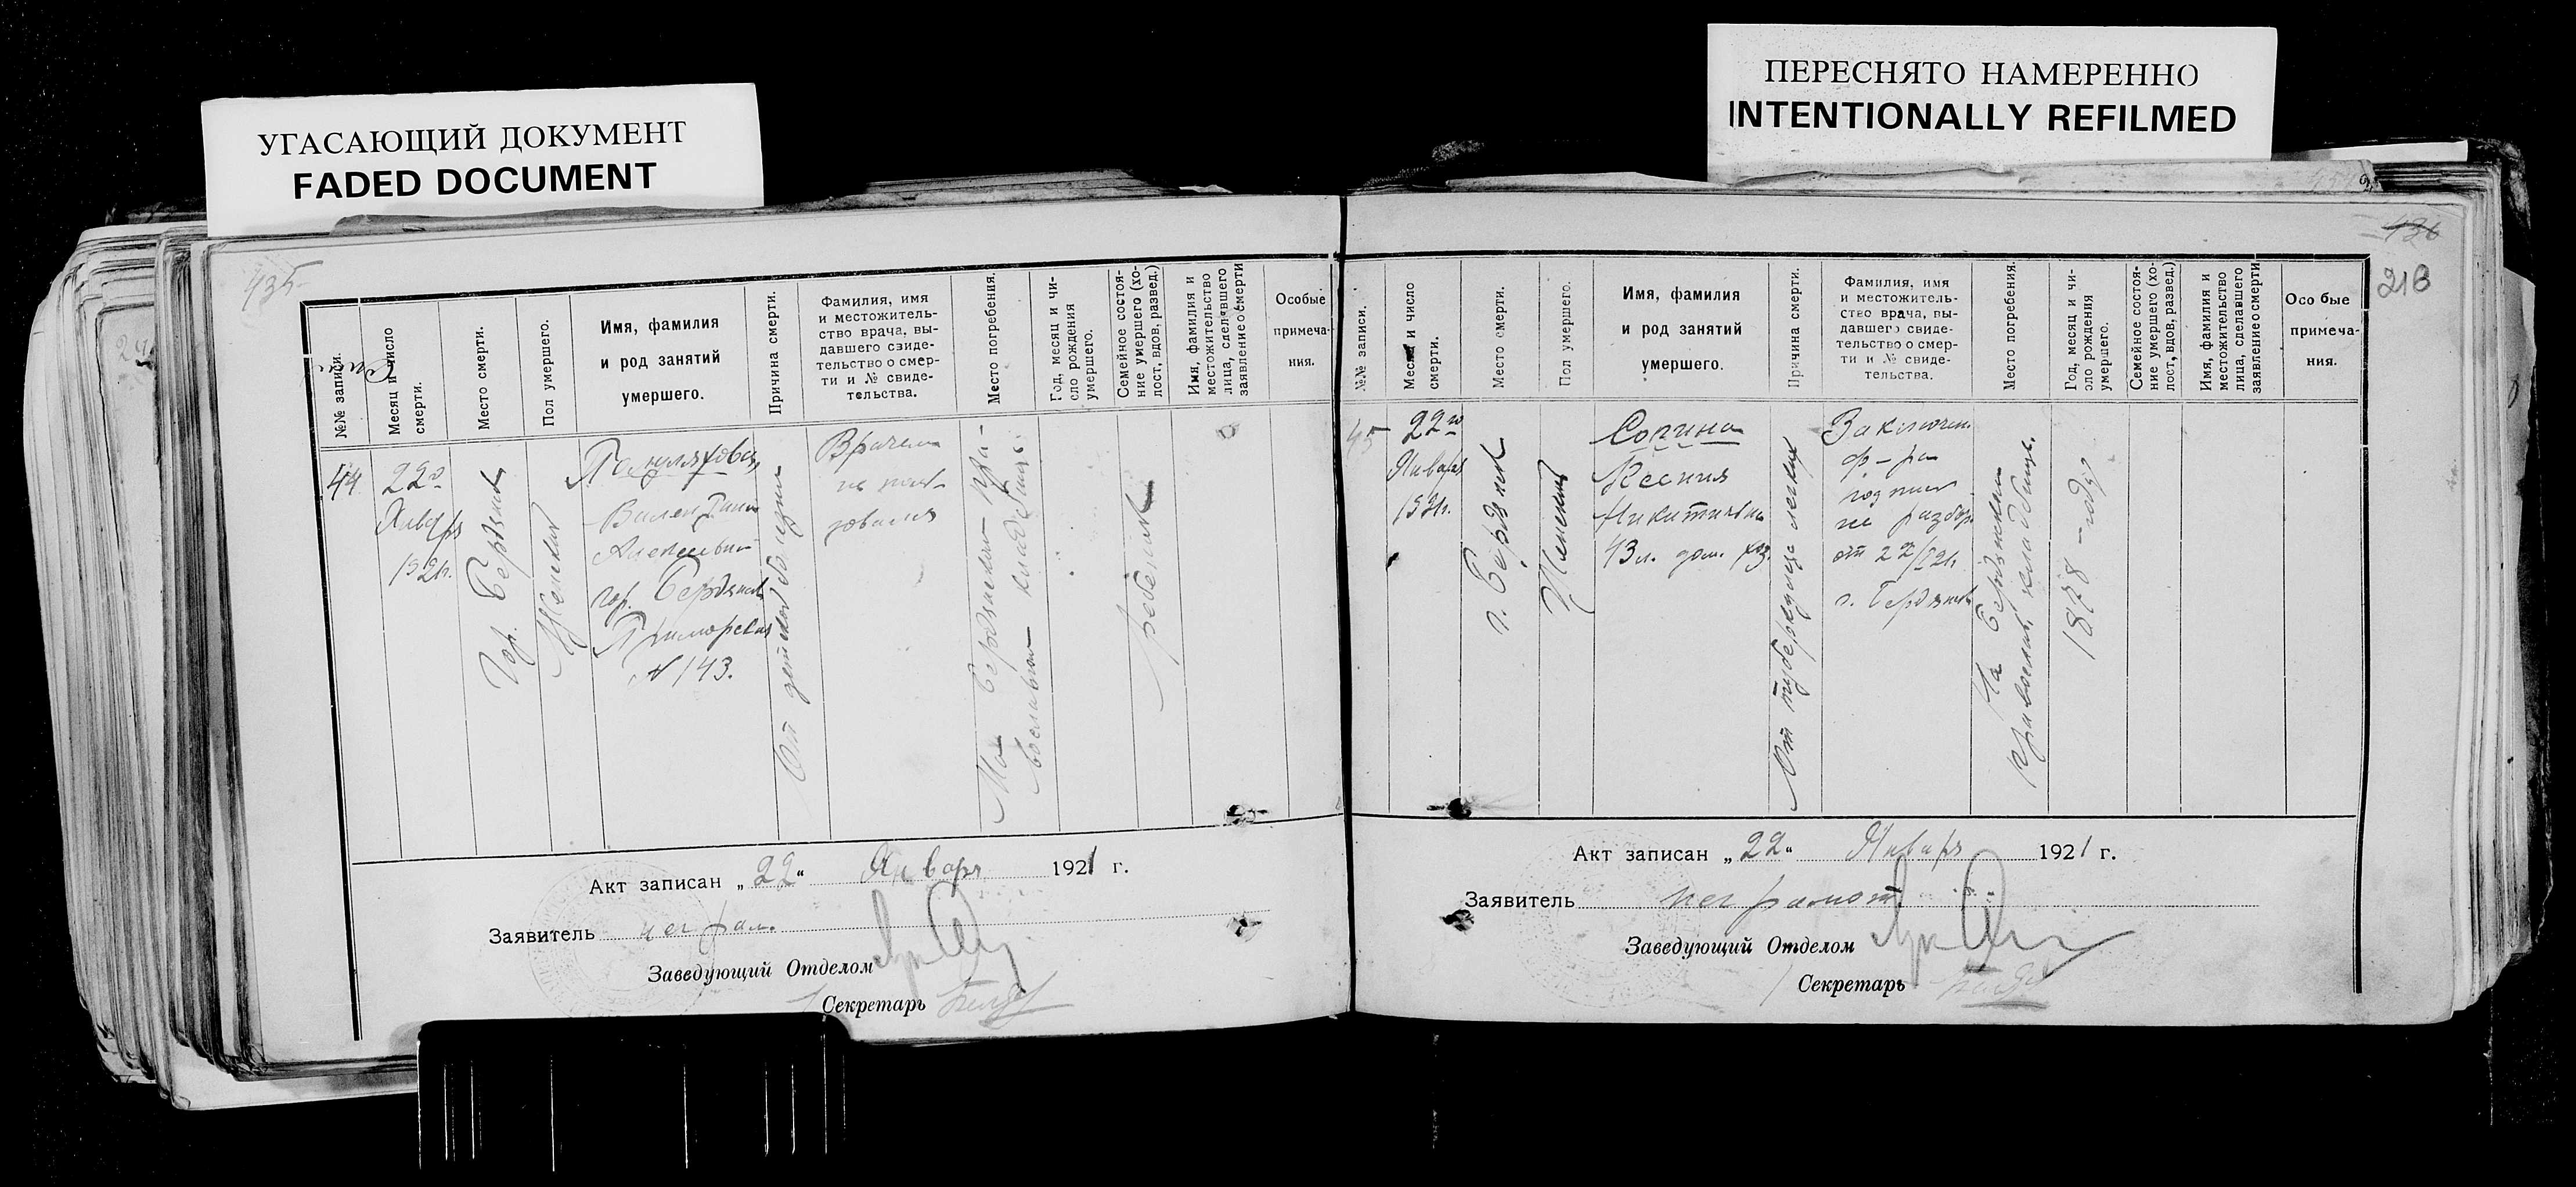 УГАСАЮЩИЙ ДОКУМЕНТ
FADED DOCUMENT
ПЕРЕСНЯТО НАМЕРЕННО
INTENTIONALLY REFILMED
435
№№ записи.
Месяц и число
смерти.
Место смерти.
Пол умершего.
Имя, фамилия
и род занятий
умершего.
Причина смерти.
Фамилия, имя
и местожитель-
ство врача, вы-
давшего свиде-
тельство о смер-
ти и № свиде-
тельства.
Место погребения.
Год, месяц и чи-
сло рождения
умершего.
Семейное состоя-
ние умершего (хо-
лост, вдов, развед.)
Имя, фамилия и
местожительство
лица, сделавшего
заявление о смерти
Особые
примеча-
ния.
44
22го
Января
1921г.
Гор. Бердянск
Женский
Валентина
Алексеевна
гор. Бердянск
Приморская
№ 143.
От детской болезни
Врачем
не поль-
зовался
На Бердянском пра-
вославном кладбище
ребенок
Акт записан „22“ Января 1921 г.
Заявитель неграм.
Заведующий Отделом
Секретарь
436
218
№№ записи.
Месяц и число
смерти.
Место смерти.
Пол умершего.
Имя, фамилия
и род занятий
умершего.
Причина смерти.
Фамилия, имя
и местожитель-
ство врача, вы-
давшего свиде-
тельство о смер-
ти и № свиде-
тельства.
Место погребения.
Год, месяц и чи-
сло рождения
умершего.
Семейное состоя-
ние умершего (хо-
лост, вдов, развед.)
Имя, фамилия и
местожительство
лица, сделавшего
заявление о смерти
Особые
примеча-
ния.
45
22го
Января
1921г.
г. Бердянск
Женский
Сопина
Ксения
Никитична
43 л. дом. хоз.
От туберкулеза легких
Заключен.
д-ра
подпись
не разбор.
от 22/I 21г.
г. Бердянск
На Бердянском
православн. кладбище.
1878 - году
Акт записан „22“ Января 1921 г.
Заявитель неграмот.
Заведующий Отделом
Секретарь